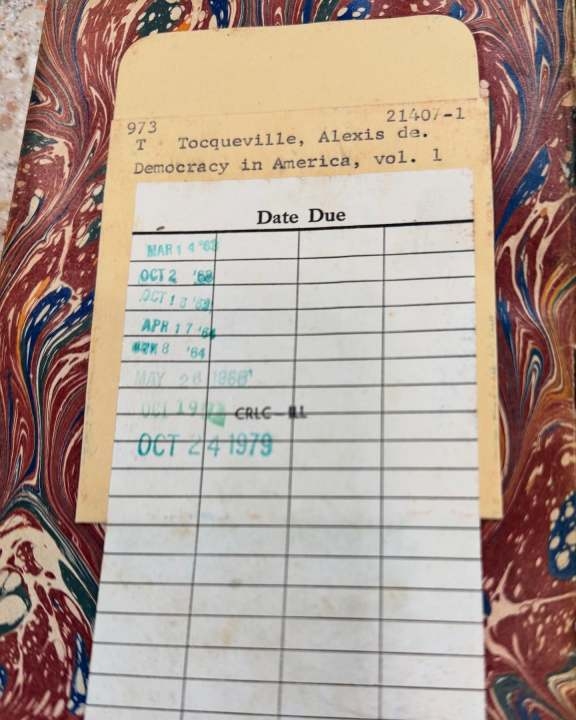 973 21407-1
T Tocqueville, Alexis de.
Democracy in America, vol. 1
Date Due
MAR 14 '63
OCT 2 '63
OCT 18 '63
APR 17 '64
8 '64
MAY 26 1966
OCT 19 CRLC-ILL
OCT 24 1979